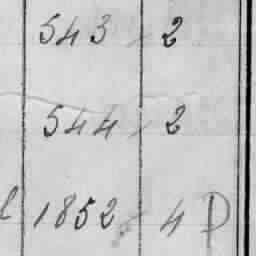 543 2
544 2
1852 4 D